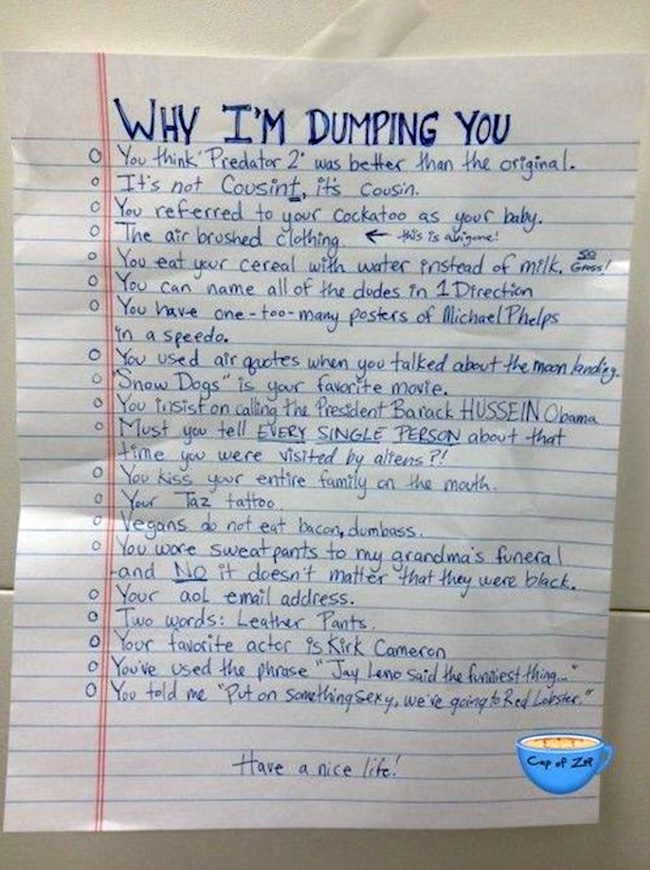 WHY I'M DUMPING YOU
You think "Predator 2" was better than the original.
It's not Cousint, it's cousin.
You referred to your cockatoo as your baby.
The air brushed clothing ← this is a biggone!
You eat your cereal with water instead of milk. SO Gross!
You can name all of the dudes in 1 Direction
You have one-too-many posters of Michael Phelps
in a speedo.
You used air quotes when you talked about the moon landing.
"Snow Dogs" is your favorite movie.
You insist on calling the President Barack HUSSEIN Obama
Must you tell EVERY SINGLE PERSON about that
time you were visited by aliens?!
You kiss your entire family on the mouth.
Your Taz tattoo.
Vegans do not eat bacon, dumbass.
You wore sweatpants to my grandma's funeral
-and NO it doesn't matter that they were black.
Your aol email address.
Two words: Leather Pants.
Your favorite actor is Kirk Cameron
You've used the phrase "Jay Leno said the funniest thing..."
You told me "Put on something sexy, we're going to Red Lobster."
Have a nice life!
Cup of Zup